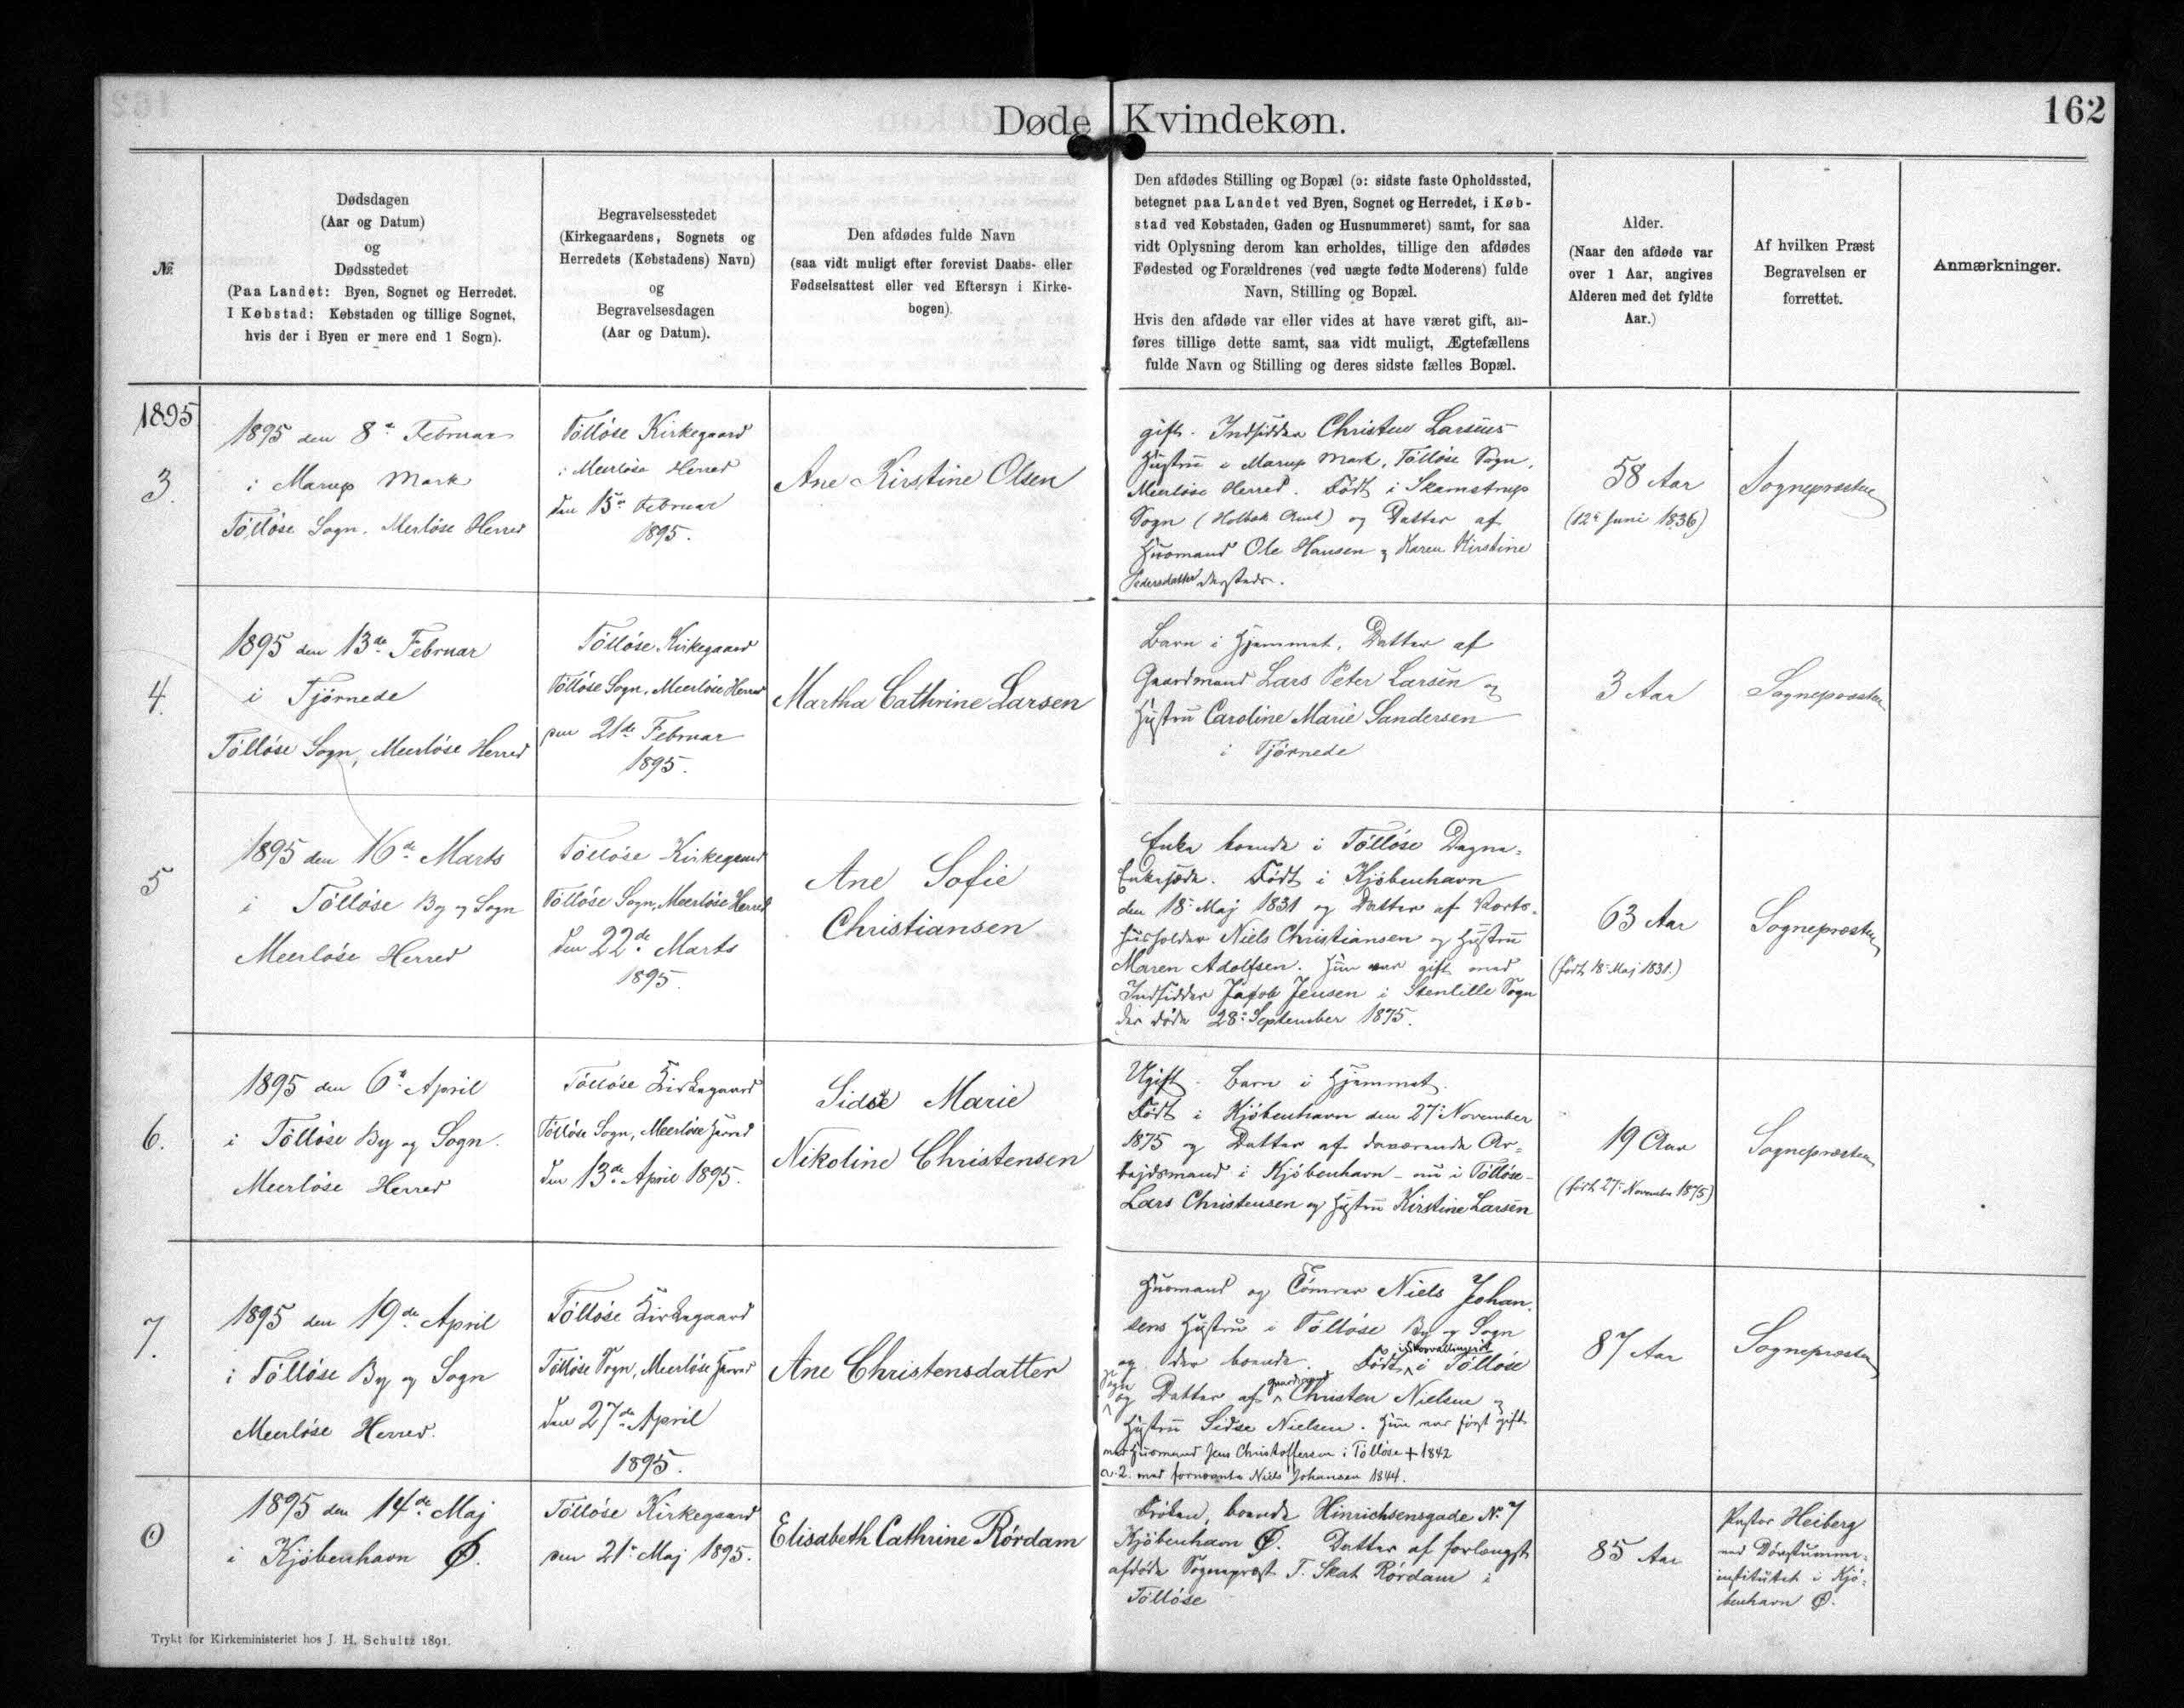 Døde Kvindekøn.
162
№
Dødsdagen
(Aar og Datum)
og
Dødsstedet
(Paa Landet: Byen, Sognet og Herredet.
I Købstad: Købstaden og tillige Sognet,
hvis der i Byen er mere end 1 Sogn).
Begravelsesstedet
(Kirkegaardens, Sognets og
Herredets (Købstadens) Navn)
og
Begravelsesdagen
(Aar og Datum).
Den afdødes fulde Navn
(saa vidt muligt efter forevist Daabs- eller
Fødselsattest eller ved Eftersyn i Kirke-
bogen).
Den afdødes Stilling og Bopæl (ɔ: sidste faste Opholdssted,
betegnet paa Landet ved Byen, Sognet og Herredet, i Køb-
stad ved Købstaden, Gaden og Husnummeret) samt, for saa
vidt Oplysning derom kan erholdes, tillige den afdødes
Fødested og Forældrenes (ved uægte fødte Moderens) fulde
Navn, Stilling og Bopæl.
Hvis den afdøde var eller vides at have været gift, an-
føres tillige dette samt, saa vidt muligt, Ægtefællens
fulde Navn og Stilling og deres sidste fælles Bopæl.
Alder.
(Naar den afdøde var
over 1 Aar, angives
Alderen med det fyldte
Aar.)
Af hvilken Præst
Begravelsen er
forrettet.
Anmærkninger.
1895
3.
1895 den 8de Februar
i Marup Mark
Tölløse Sogn. Merløse Herred
Tölløse Kirkegaard
i Meerløse Herred
den 15de Februar
1895.
Ane Kirstine Olsen
gift. Indsidder Christen Larsens
Hustru i Marup Mark, Tölløse Sogn,
Meerløse Herred. Født i Skamstrup
Sogn (Holbæk Amt) og Datter af
Husmand Ole Hansen og Karen Kirstine
Pedersdatter dersteds.
58 Aar
(12te Juni 1836)
Sognepræsten
4.
1895 den 13de Februar
i Tjørnede
Tölløse Sogn, Meerløse Herred
Tölløse Kirkegaard
Tölløse Sogn, Meerløse Herred
den 21de Februar
1895.
Martha Cathrine Larsen
Barn i Hjemmet. Datter af
Gaardmand Lars Peter Larsen og
Hustru Caroline Marie Sandersen
i Tjørnede
3 Aar
Sognepræsten
5
1895 den 16de Marts
i Tölløse By og Sogn
Meerløse Herred
Tölløse Kirkegaard
Tölløse Sogn, Meerløse Herred
den 22de Marts
1895.
Ane Sofie
Christiansen
Enke boende i Tölløse
Født i Kjøbenhavn
den 18de Maj 1831 og Datter af
Niels Christiansen og Hustru
Maren Adolfsen. Hun var gift med
Indsidder Jacob Jensen i Stenlille Sogn
der døde 28de September 1875.
63 Aar
(født 18de Maj 1831.)
Sognepræsten
6.
1895 den 6te April
i Tölløse By og Sogn.
Meerløse Herred
Tölløse Kirkegaard
Tölløse Sogn, Meerløse Herred
den 13de April 1895.
Sidse Marie
Nikoline Christensen
Ugift. Barn i Hjemmet.
Født i Kjöbenhavn den 27de November
1875 og Datter af daværende Ar-
bejdsmand i Kjöbenhavn - nu i Tölløse -
Lars Christensen og Hustru Kirstine Larsen
19 Aar
(født 27de November 1875)
Sognepræsten
7.
1895 den 19de April
i Tölløse By og Sogn
Meerløse Herred.
Tölløse Kirkegaard
Tölløse Sogn, Meerløse Herred
den 27de April
1895.
Ane Christensdatter
Husmand og Tømrer Niels Johan-
sens Hustru i Tölløse By og Sogn
og der boende. Født i Tölløse
Sogn og Datter af Gaardmand Christen Nielsen og
Hustru Sidse Nielsen. Hun var først gift
med Husmand Jens Christoffersen i Tölløse + 1842
og 2. med fornævnte Niels Johansen 1844.
87 Aar
Sognepræsten
0
1895 den 14de Maj
i Kjöbenhavn Ø.
Tölløse Kirkegaard
den 21de Maj 1895.
Elisabeth Cathrine Rørdam
Frøken, boende Hinrichsensgade No 7
Kjöbenhavn Ø. Datter af forlængst
afdøde Sognepræst T. Skat Rørdam i
Tölløse
85 Aar
Pastor Heiberg
ved Døvstumme-
institutet i Kjö-
benhavn Ø.
Trykt for Kirkeministeriet hos J. H. Schultz 1891.